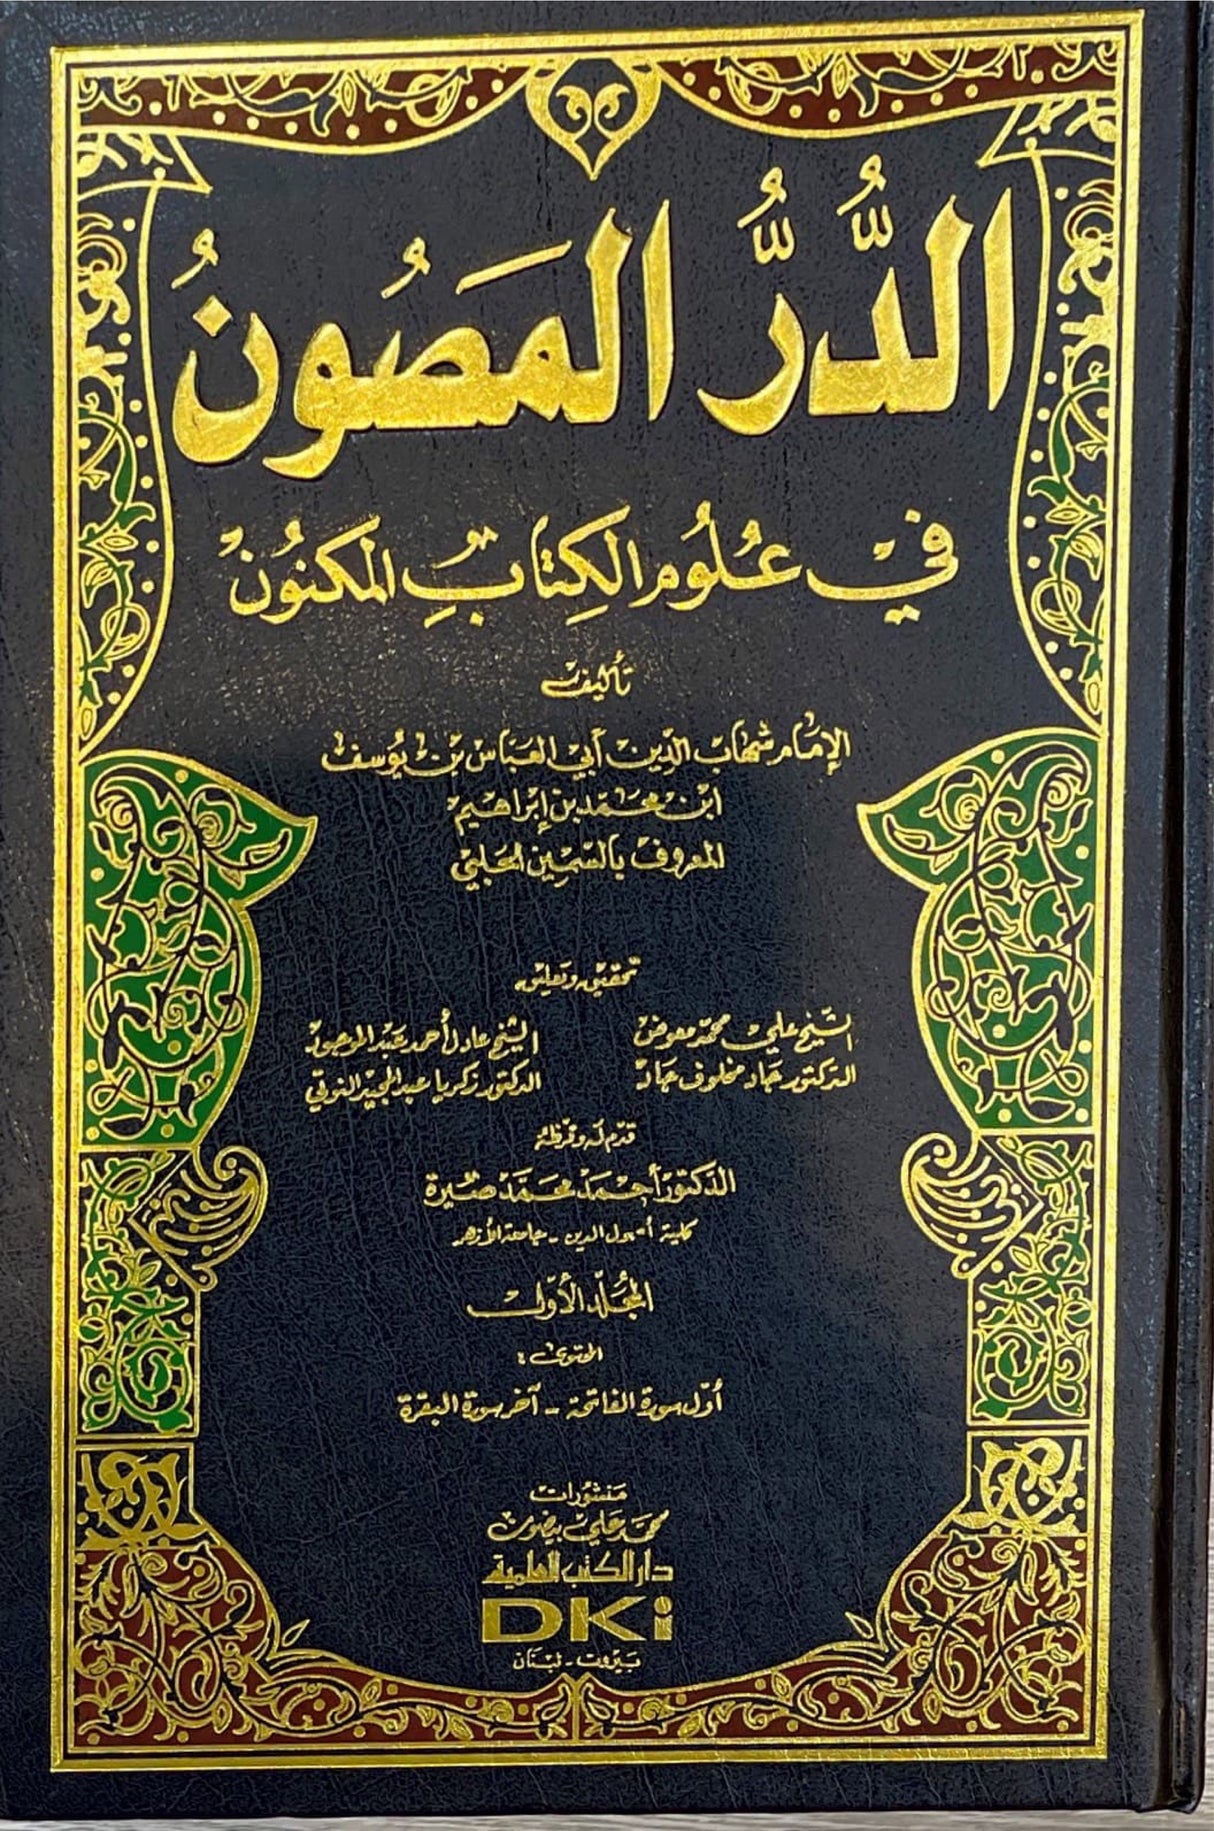 الدُّرُّ المَصُونُ
في عُلُومِ الكِتَابِ المَكنُون
تأليف
الإمام شهاب الدين أبي العباس بن يوسف
ابن محمد بن إبراهيم
المعروف بالسمين الحلبي
تحقيق وتعليق
الشيخ علي محمد معوض
الشيخ عادل أحمد عبد الموجود
الدكتور جاد مخلوف جاد
الدكتور زكريا عبد المجيد النوتي
قدم له وقرظه
الدكتور أحمد محمد صيرة
كلية أصول الدين - جامعة الأزهر
المجلد الأول
المحتوى :
أول سورة الفاتحة - آخر سورة البقرة
منشورات
محمد علي بيضون
دار الكتب العلمية
DKi
بيروت - لبنان